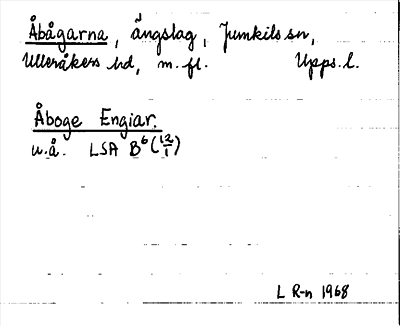 Åbågarna, ängslag, Jumkils sn,
Ulleråkers hd, m.fl. Upps. l.
Åboge Engiar.
u.å. LSA B⁶ (12/1)
L R-n 1968